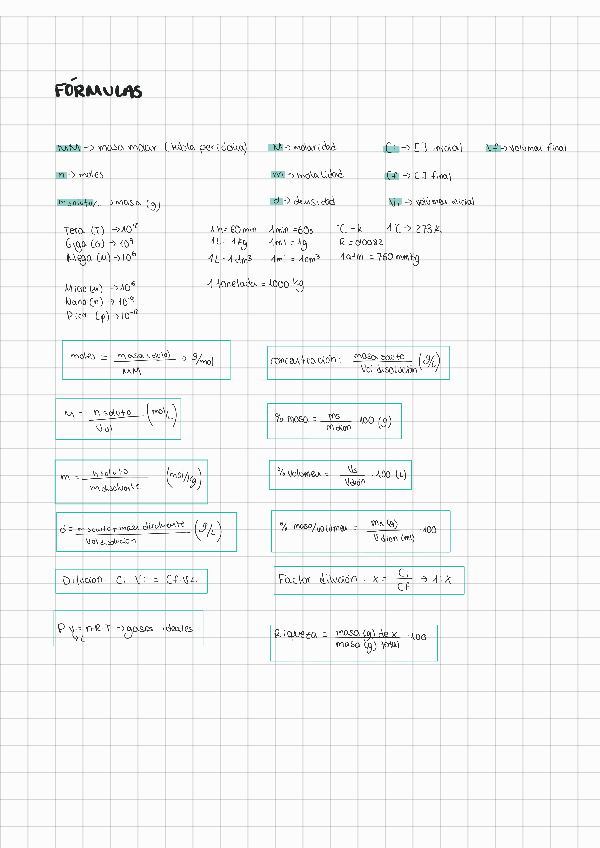 FÓRMULAS
MM → masa molar (tabla periódica)   M → molaridad   Ci → [ ] inicial   Vf → volumen final
n → moles   m → molalidad   Cf → [ ] final
m soluto → masa (g)   d → densidad   Vi → volumen inicial
Tera (T) → 10¹²   1h = 60 min   1min = 60s   °C - K   1°C → 273 K
Giga (G) → 10⁹   1L = 1 Kg   1ml = 1g   R = 0'0082
Mega (M) → 10⁶   1L = 1 dm³   1ml = 1cm³   1atm = 760 mmHg
Micro (μ) → 10⁻⁶   1 tonelada = 1000 Kg
Nano (n) → 10⁻⁹
Pico (p) → 10⁻¹²
moles = masa soluto / MM → g/mol   concentración: masa soluto / Vol disolución (g/L)
M = n soluto / Vol (mol/L)   % masa = ms / mdion · 100 (g)
m = n soluto / m disolvente (mol/Kg)   % volumen = Vs / Vdion · 100 (L)
d = m soluto + masa disolvente / Vol disolución (g/L)   % masa/volumen = ms (g) / V dion (ml) · 100
Dilución Ci Vi = Cf Vf   Factor dilución · x = Ci / Cf → 1:X
P V = n R T → gases ideales
Riqueza = masa (g) de x / masa (g) total · 100